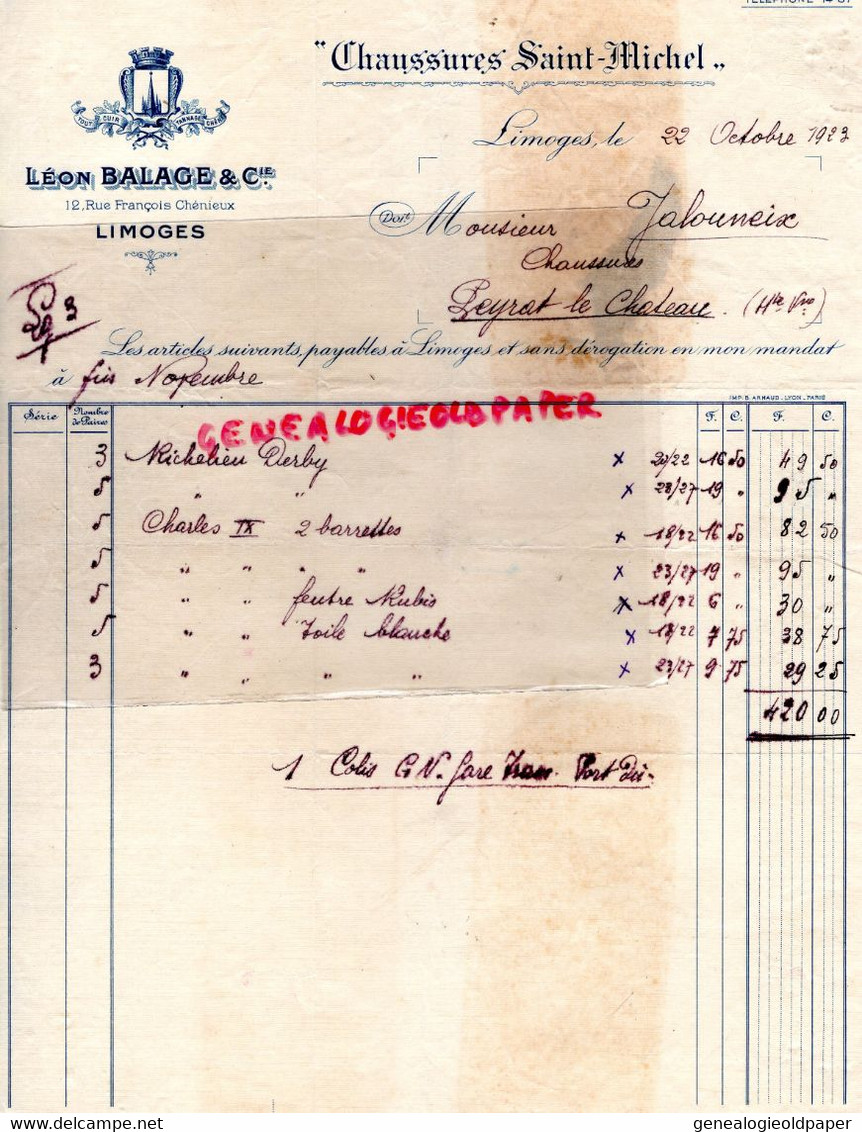 TÉLÉPHONE 14-87
"Chaussures Saint-Michel„
TOUT CUIR TANNAGE CHÊNE
Limoges, le 22 Octobre 1923
LÉON BALAGE & CIE.
12, Rue François Chénieux
LIMOGES
Doit Monsieur Jalouneix
Chaussures
Peyrat le Chateau. (Hte Vne)
Les articles suivants, payables à Limoges et sans dérogation en mon mandat
à fin Novembre
IMP. B. ARNAUD - LYON - PARIS
Série Nombre de Paires F. C. F. C.
GENEALOGIEOLDPAPER
3 Richelieu Derby x 20/22 16 50 49 50
5 " " x 23/27 19 " 95 "
5 Charles IX 2 barrettes x 18/22 16 50 82 50
5 " " " " x 23/27 19 " 95 "
5 " " feutre Rubis x 18/22 6 " 30 "
5 " " Toile blanche x 18/22 7 75 38 75
3 " " " " x 23/27 9 75 29 25
420 00
1 Colis G.V. gare Tram. Port Dû.
genealogieoldpaper